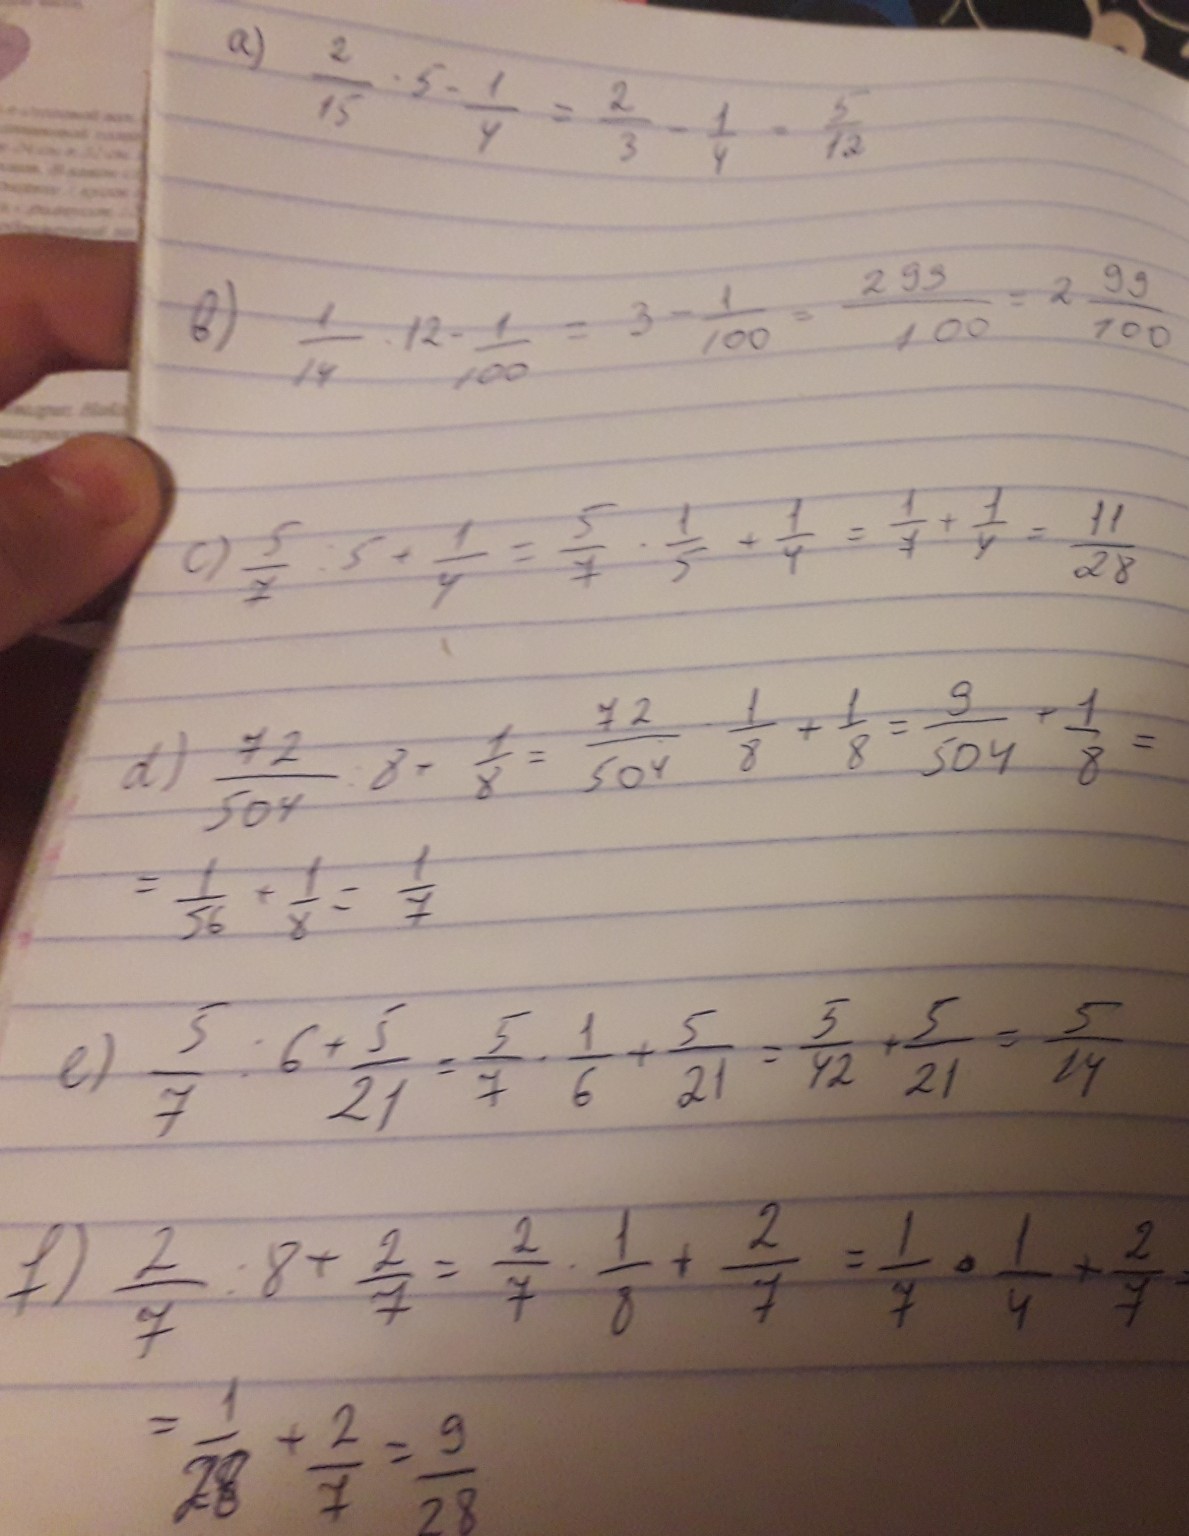 a) 2/15 · 5 - 1/4 = 2/3 - 1/4 = 5/12
b) 1/14 · 12 - 1/100 = 3 - 1/100 = 299/100 = 2 99/100
c) 5/7 : 5 + 1/4 = 5/7 · 1/5 + 1/4 = 1/7 + 1/4 = 11/28
d) 72/504 : 8 + 1/8 = 72/504 · 1/8 + 1/8 = 9/504 + 1/8 =
= 1/56 + 1/8 = 1/7
e) 5/7 : 6 + 5/21 = 5/7 · 1/6 + 5/21 = 5/42 + 5/21 = 5/14
f) 2/7 : 8 + 2/7 = 2/7 · 1/8 + 2/7 = 1/7 · 1/4 + 2/7 =
= 1/28 + 2/7 = 9/28